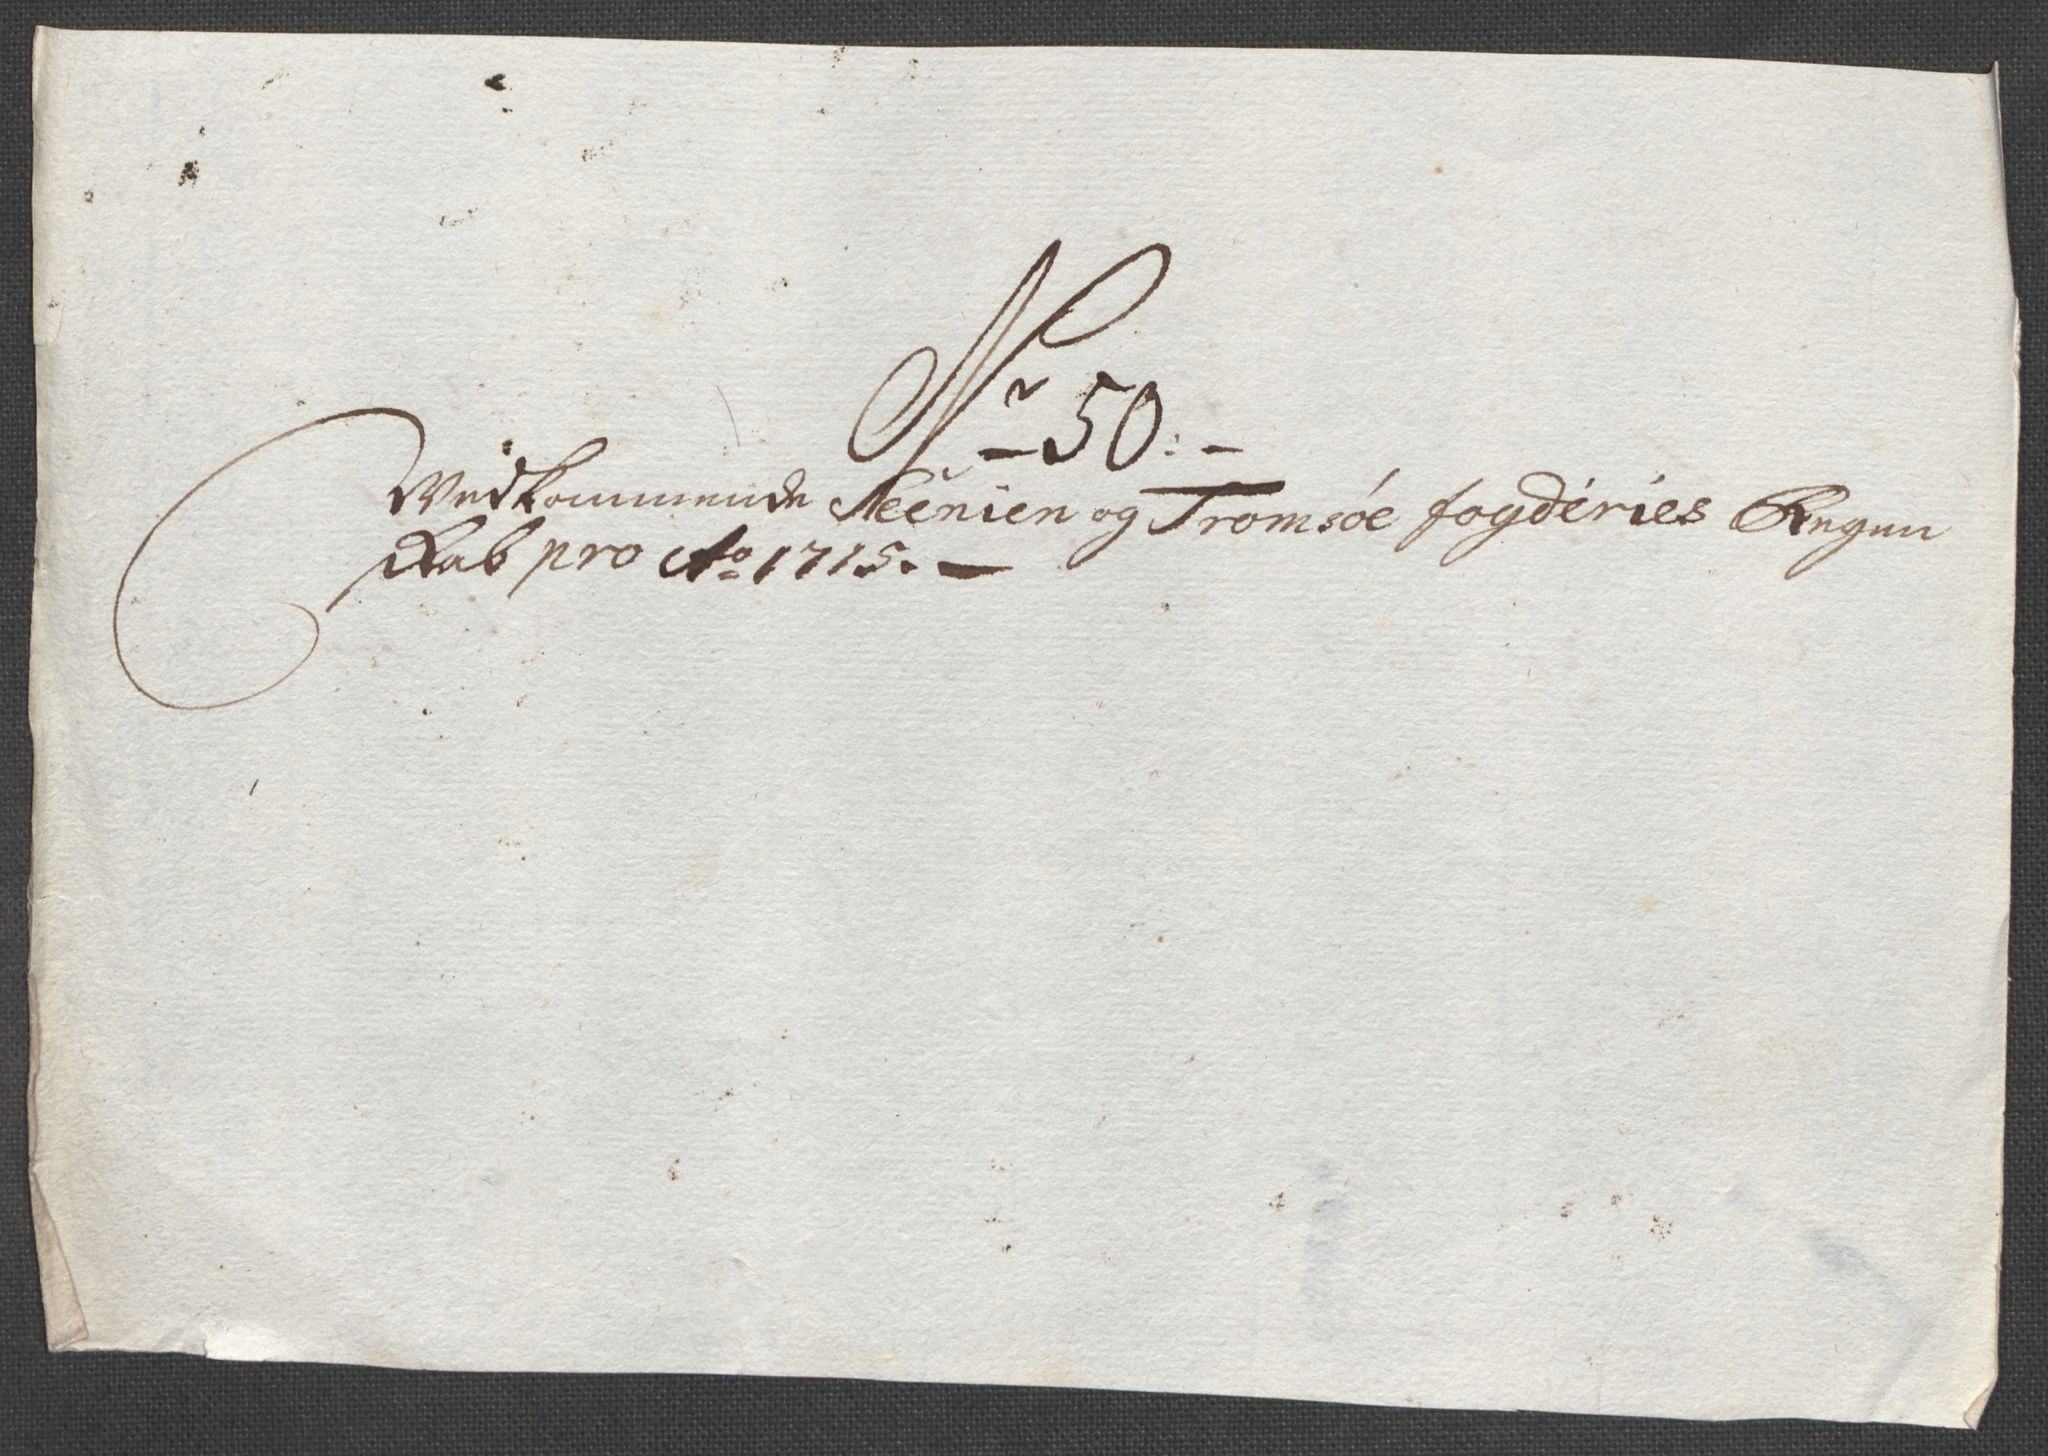 Nr 50:
Vedkommende Seenien og Tromsøe fogderies Regen
skab pro Ao 1715.